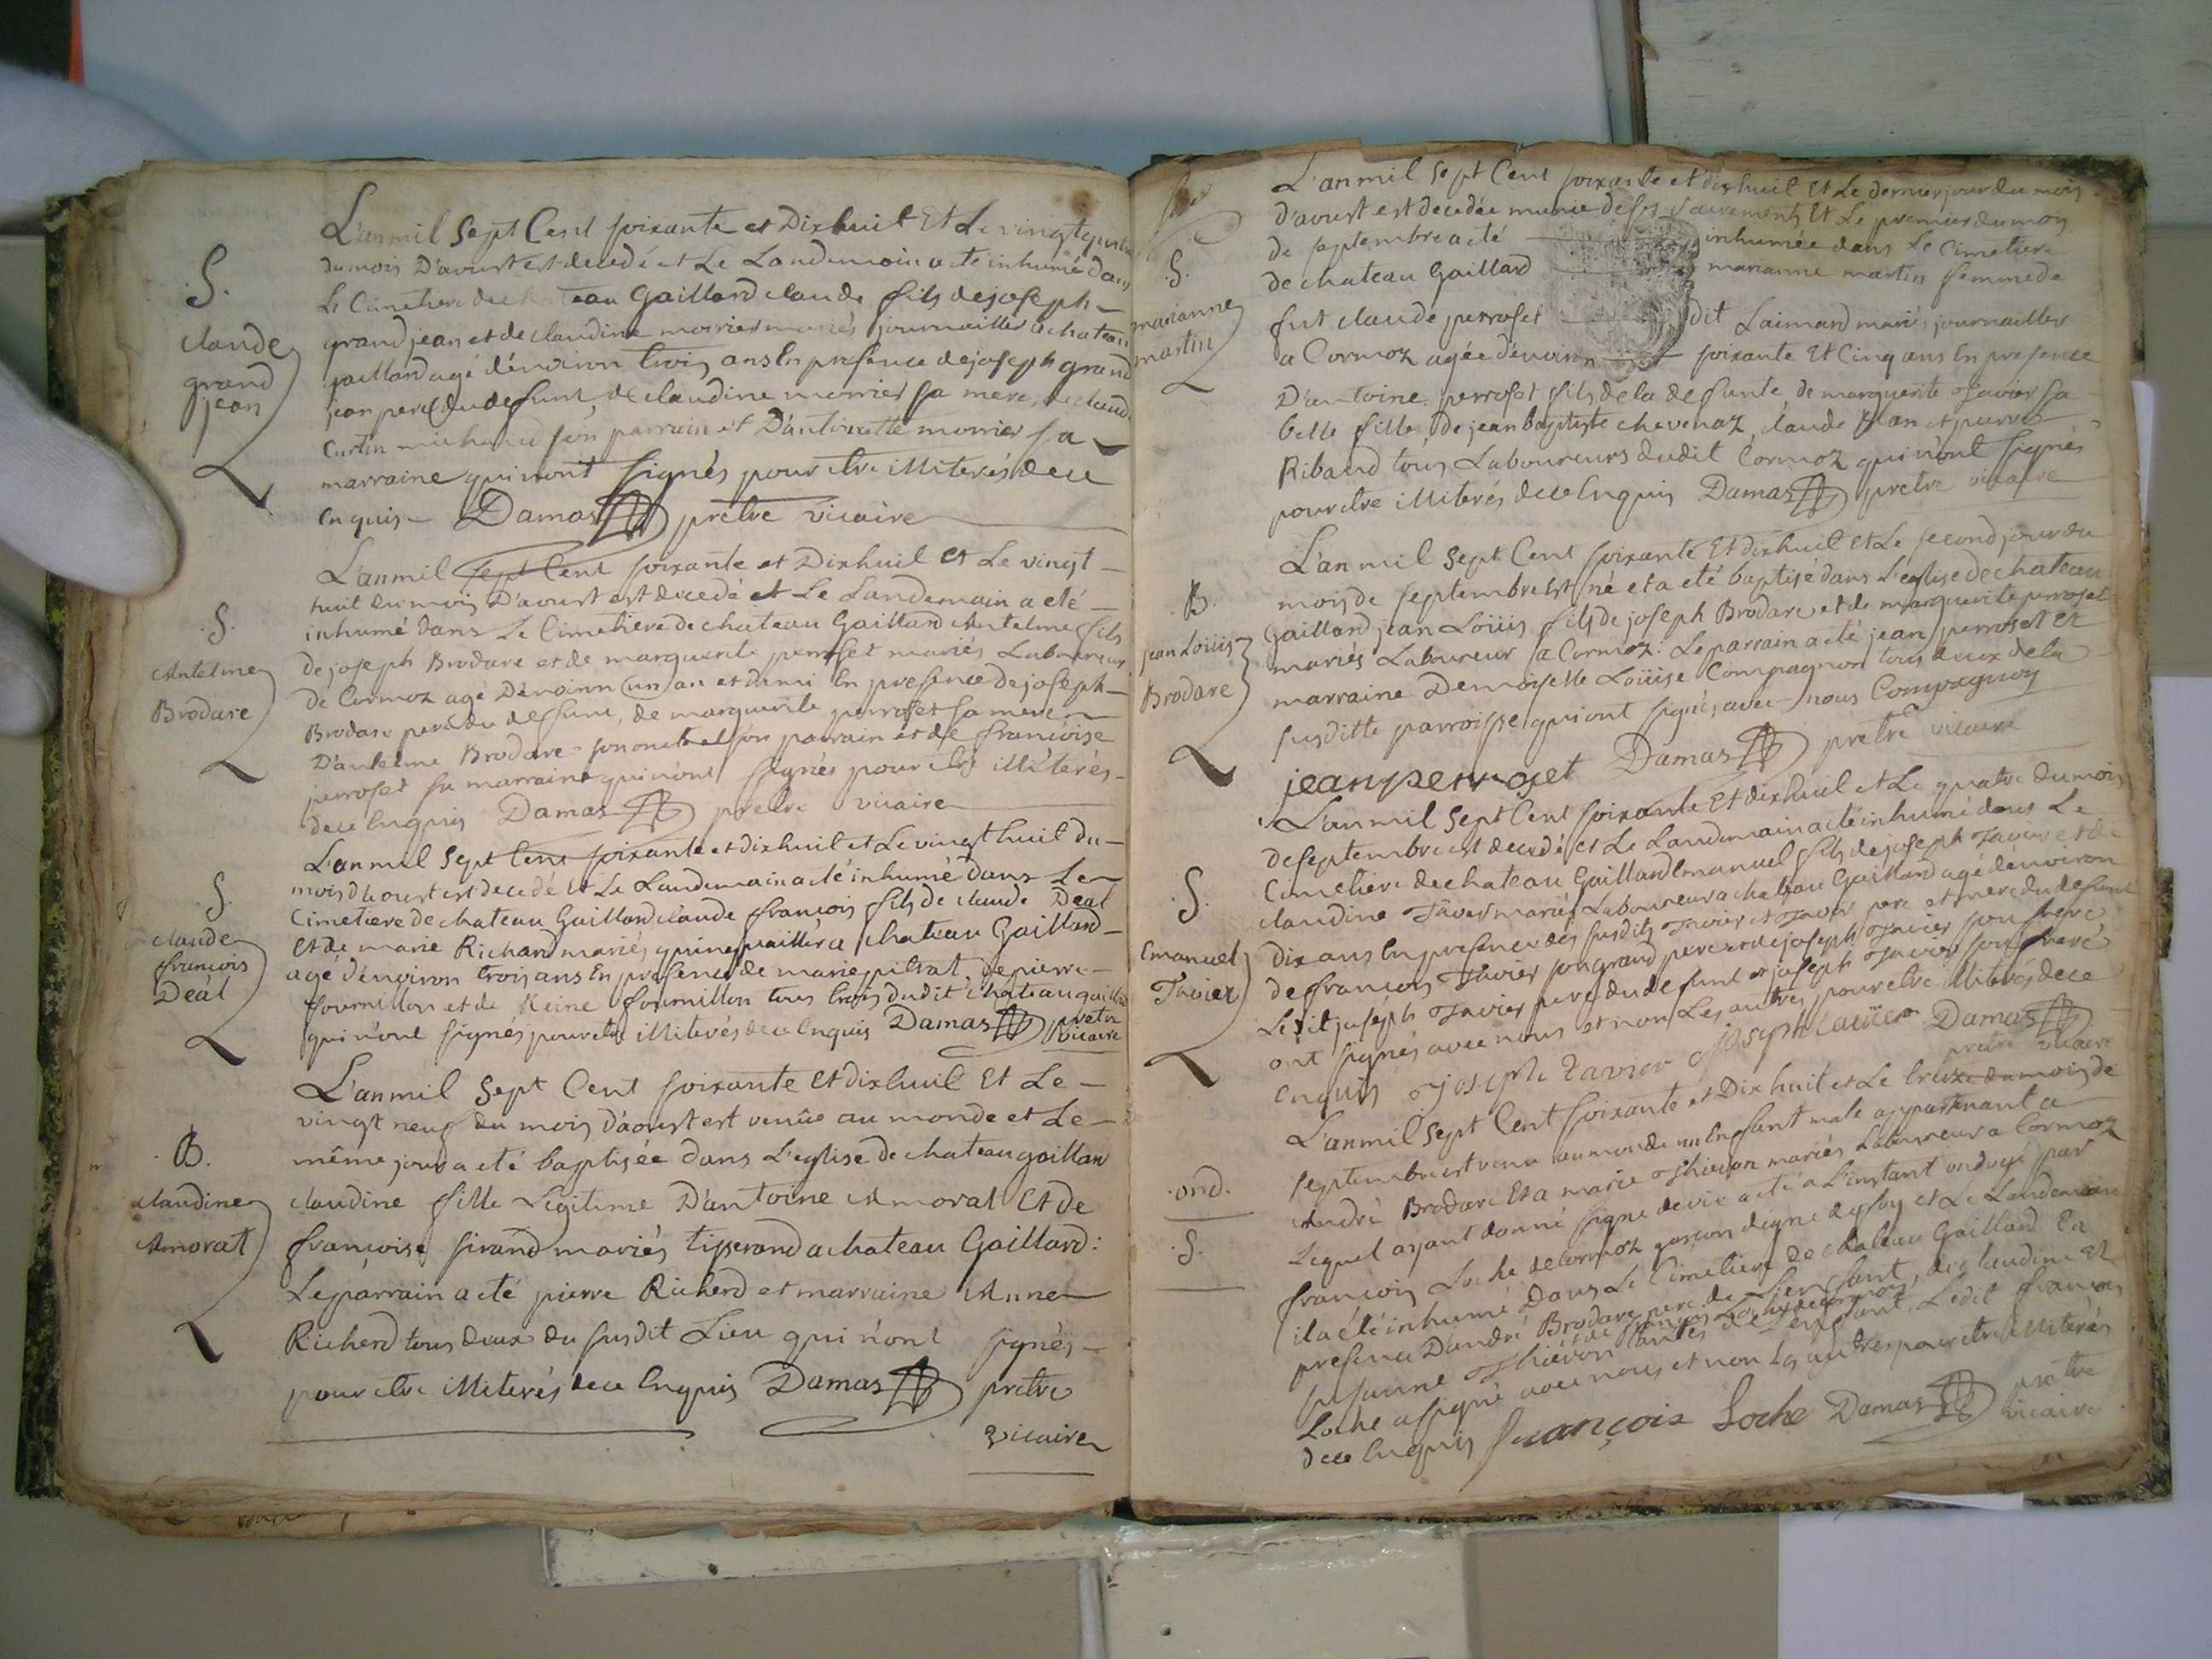 S.
claude
grand
jean
L'an mil Sept Cent soixante et Dixhuit Et Le vingt
du mois D'avoust est decedé et Le Landemain a eté inhumé dans
Le Cimetiere de chateau Gaillard claude fils de joseph
grand jean et de claudine morrier mariés journaillier a chateau
gaillard agé d'environ trois ans En presence de joseph grand
jean pere du defunt, de claudine morrier sa mere, de claude
Curtin michaud son parrain et D'antoinette morrier sa
marraine qui n'ont signés pour etre illiterés de ce
enquis Damas prêtre vicaire
S.
Antelme
Brodare
L'an mil sept Cent soixante et Dixhuit et Le vingt
huit du mois D'avoust est decedé et Le Landemain a eté
inhumé dans Le Cimetiere de chateau Gaillard Antelme fils
de joseph Brodare et de marguerite perroset mariés Laboureur
de Cormoz agé D'environ un an et demi En presence de joseph
Brodare pere du deffunt, de marguerite perroset sa mere
D'antelme Brodare son oncle et son parrain et de francoise
perroset sa marraine qui n'ont signés pour etre illiterés
de ce enquis Damas pretre vicaire
S.
claude
françois
Déal
L'an mil Sept Cent soixante et dixhuit et Le vingt huit du
mois d'aoust est decedé Et Le Landemain a eté inhumé dans Le
Cimetiere de chateau Gaillard claude françois fils de claude Déal
Et de marie Richard mariés quinquaillier a chateau Gaillard
agé d'environ trois ans En presence de marie pitrat, de pierre
fournillon et de Reine fournillon tous trois dudit chateau gaillard
qui n'ont signés pour etre illiterés de ce Enquis Damas pretre
vicaire
B.
claudine
Amorat
L'an mil Sept Cent soixante Et dixhuit Et Le
vingt neuf du mois d'aoust est venüe au monde et Le
même jour a eté baptisée dans L'eglise de chateau gaillard
claudine fille Légitime D'antoine Amorat Et de
françoise sirand mariés tisserand a chateau Gaillard:
Le parrain a eté pierre Richerd et marraine Anne
Richerd tous deux du susdit Lieu qui n'ont signés
pour etre illiterés de ce Enquis Damas pretre
vicaire
S.
marianne
martin
L'an mil sept Cent soixante et dixhuit Et Le dernier jour du mois
d'avoust est decedée munie de ses sacrements Et Le premier du mois
de septembre a eté inhumée dans Le Cimetiere
de chateau Gaillard marianne martin femme de
fut claude perroset dit Laimard mariés journaillier
a Cormoz agée d'environ soixante Et Cinq ans En presence
D'antoine perroset fils de la defunte, de marguerite Tavier sa
belle fille, de jean baptiste chevenaz, claude et pierre
Ribaud tous Laboureurs dudit Cormoz qui n'ont signés
pour etre illiterés de ce Enquis Damas pretre vicaire
B.
jean Loüis
Brodare
L'an mil Sept Cent soixante Et dixhuit et Le second jour du
mois de septembre Est né et a eté baptisé dans L'eglise de chateau
Gaillard jean Loüis fils de joseph Brodare et de marguerite perroset
mariés Laboureur a Cormoz: Le parrain a eté jean perroset et
marraine Demoiselle Loüise Compagnon tous deux de la
susditte parroisse qui ont signés avec nous Compagnon
jean perroset Damas pretre vicaire
S.
Emanuel
Tavier
L'an mil Sept Cent soixante Et dixhuit et Le quatre du mois
de septembre est decedé et Le Landemain a eté inhumé dans Le
Cimetiere de chateau Gaillard Emanuel fils de joseph Tavier et de
claudine Tavier mariés Laboureur a chateau Gaillard agé d'environ
dix ans En presence des susdits Tavier et Tavier pere et mere du defunt
de françois Tavier son grand pere et de joseph Tavier son frere
Ledit joseph Tavier pere du defunt et joseph Tavier son frere
ont signés avec nous et non Les autres pour etre illiterés de ce
enquis joseph tavier joseph tavier Damas
pretre vicaire
ond.
S.
L'an mil Sept Cent soixante et Dixhuit et Le treize du mois de
septembre est venu au monde un Enfant male appartenant a
André Brodare Et a marie Thievon mariés Laboureur a Cormoz
Lequel ayant donné signe de vie a eté a L'instant ondoyé par
françois Loche de Cormoz garçon digne de foy et Le Landemain
il a eté inhumé Dans Le Cimetiere de chateau Gaillard En
presence D'andré Brodare pere de L'enfant, de claudine Et
susanne Thievon tantes de L'enfant, Ledit françois
de françois Loche de Cormoz
Loche a signé avec nous et non Les autres pour etre illiterés
de ce Enquis françois Loche Damas pretre
vicaire